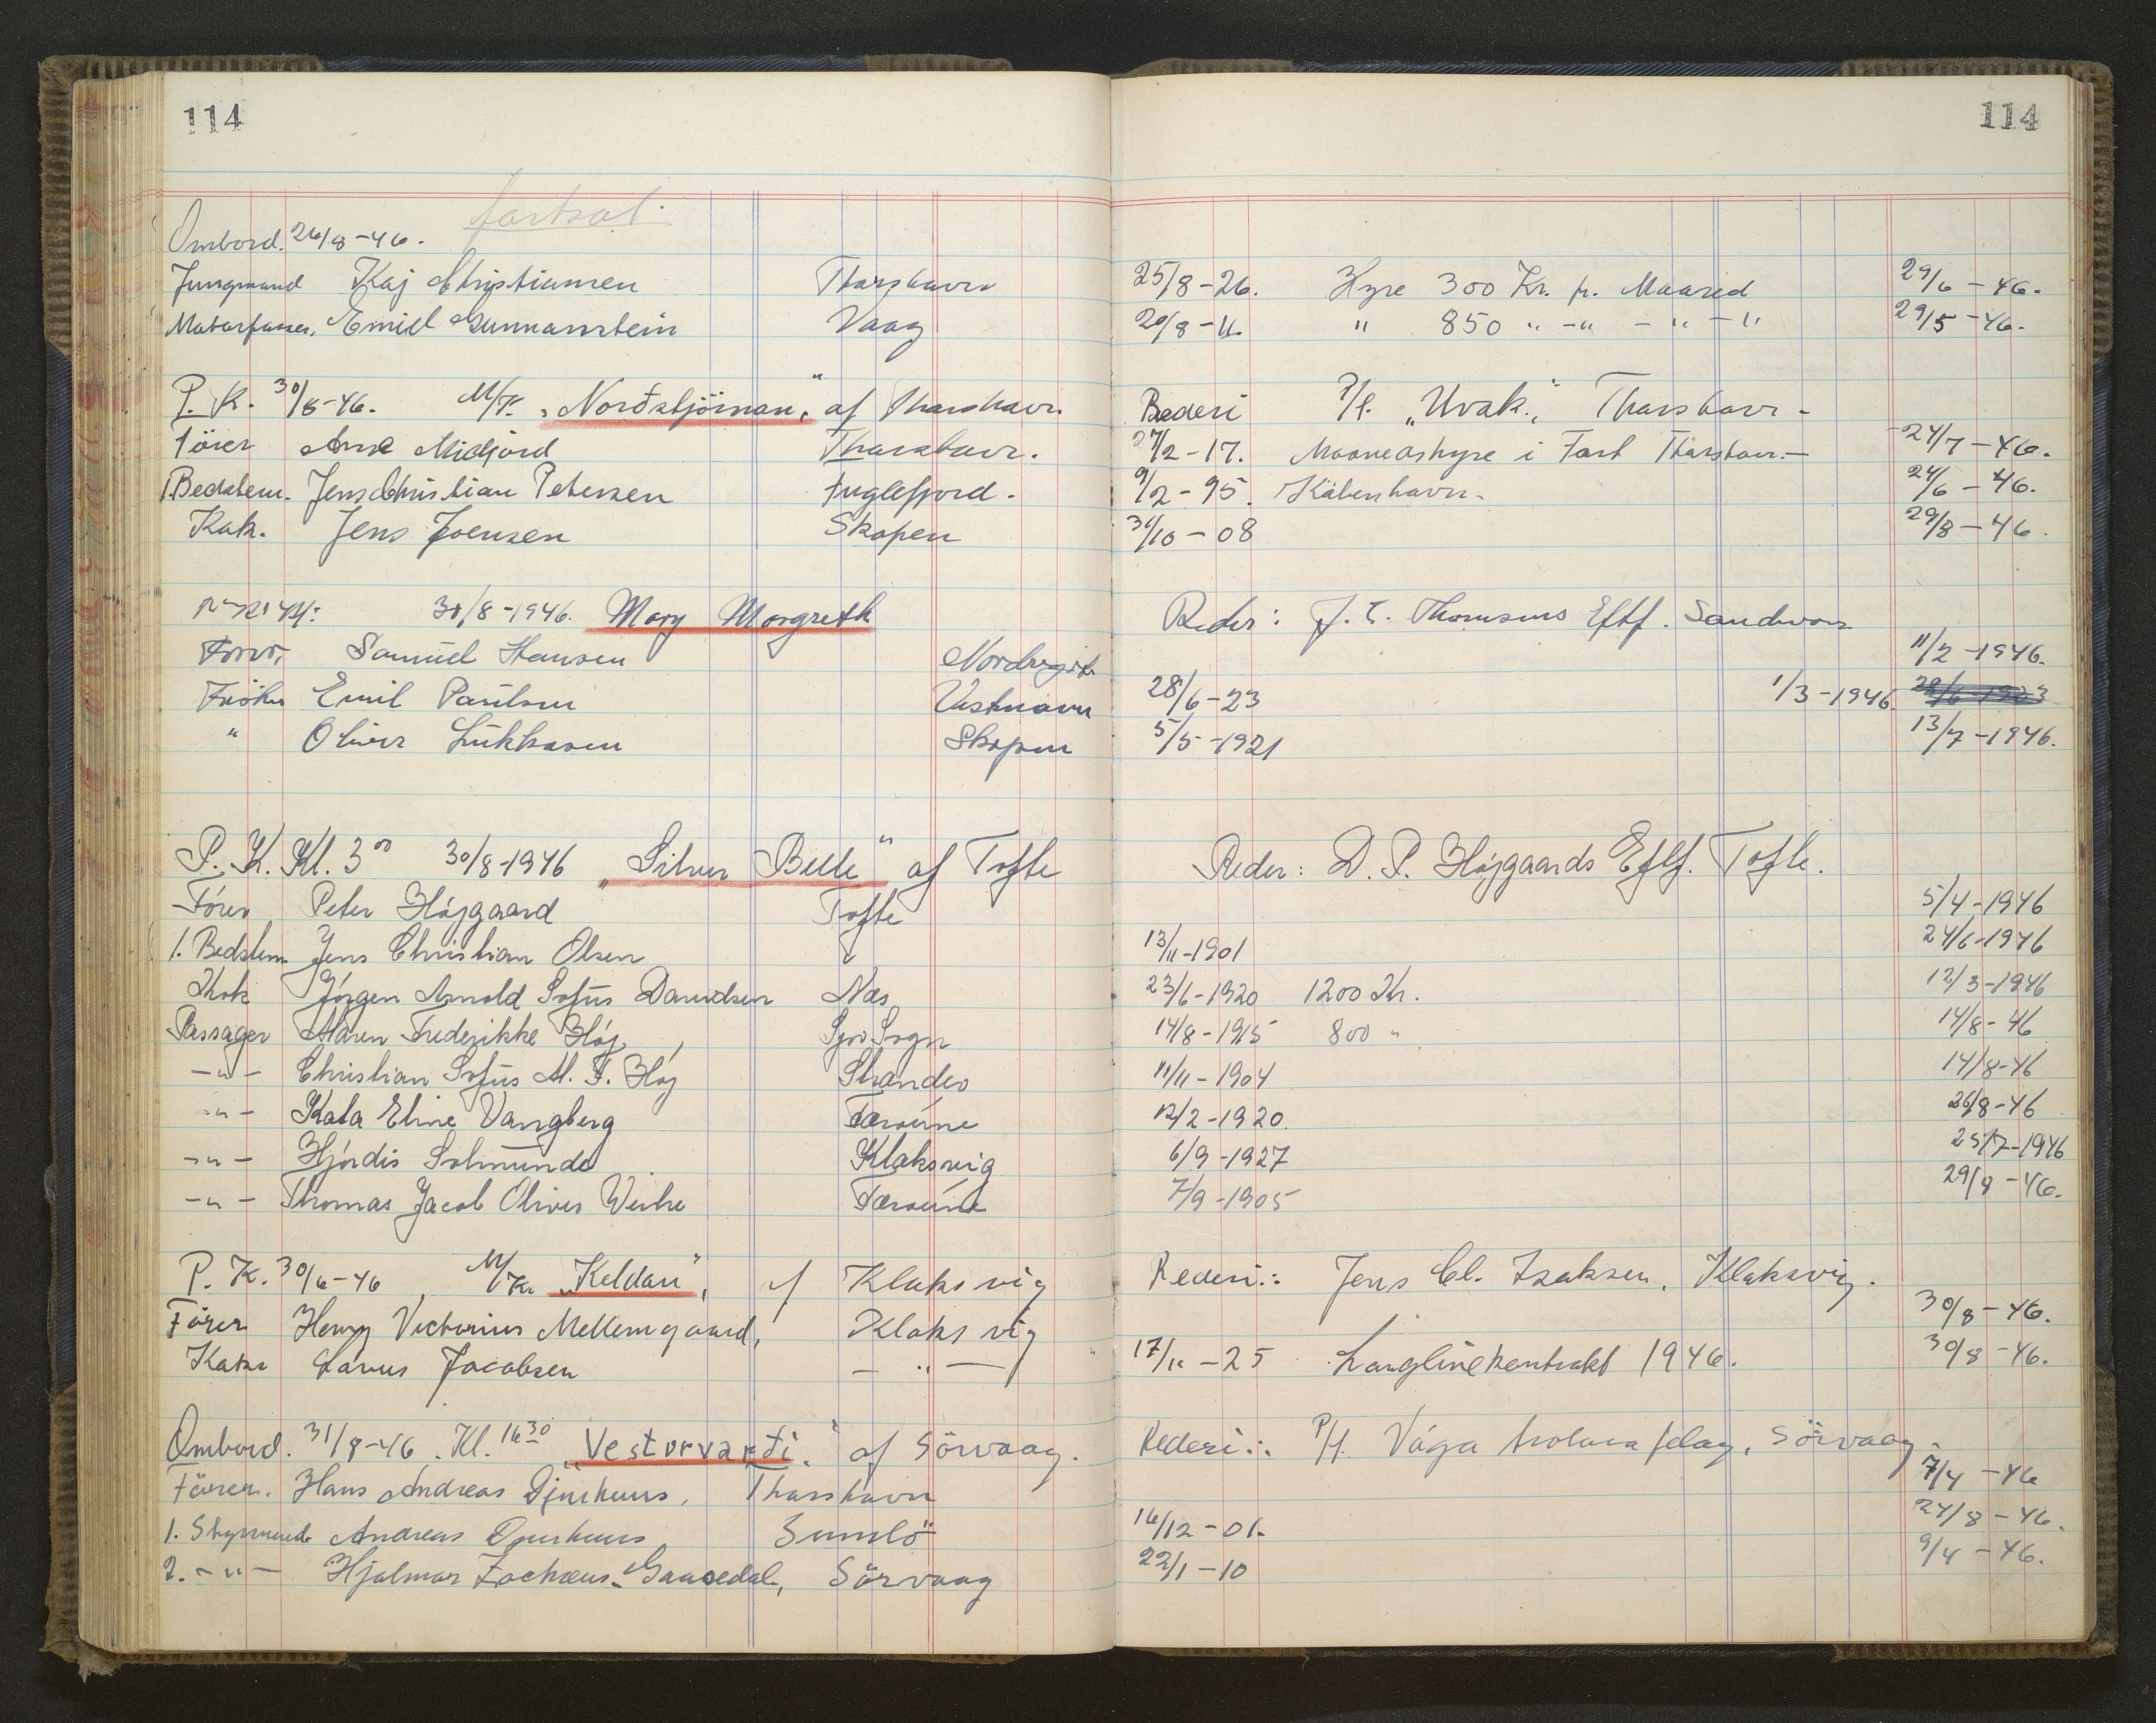 114 114
fortsat.
Ombord. 26/8-46.
Jungmand Kaj Christiansen Thorshavn 25/8-26. Hyre 300 Kr. pr. Maaned 29/6-46.
Motorpasser. Emiel Gunnarstein Vaag 20/8-11. " 850 " -" - " - " 29/5-46.
P. K. 30/8-46. M/K. "Norðstjörnan," af Thorshavn. Rederi P/f. "Hvak.," Thorshavn -
Förer Arne Midjord Thorshavn. 27/2-17. Maanedshyre i Fart Thorshavn - 24/7-46.
1.Bedstem. Jens Christian Petersen Fuglefjord. 9/2-95. Köbenhavn. 24/6-46.
Kok. Jens Joensen Skopen 31/10-08 29/8-46.
30/8-1946. Mary Margreth Reder: J. E. Thomsens Eftf. Sandvaag
Samuel Hansen 11/2-1946.
Emil Paulsen Vestmann 28/6-23 1/3-1946.
" Oliver Lükkasen Skopun 5/5-1921 13/7-1946.
P. K. Kl. 3 00 30/8-1946 "Silver Belle" af Tofte Reder: D. P. Højgaards Eftf. Tofte.
Fører Peter Højgaard Tofte 5/4-1946
1. Bedstem. Jens Christian Olsen " 13/11-1901 24/6-1946
Kok Jørgen Arnold Sofus Davidsen Næs 23/6-1920 1200 Kr. 12/3-1946
Passager Maren Frederikke Høj, 14/8-1915 800 " 14/8-46
-"- Christian Sofus M. F. Høj Strander 11/11-1904 14/8-46
-"- Kata Eline Vangberg Færøerne 12/2-1920. 26/8-46
-"- Hjørdis Solmunde Klaksvig 6/9-1927 25/7-1946
-"- Thomas Jacob Oliver Weihe Færøerne 7/9-1905 29/8-46.
P. K. 30/6-46, M/K "Keldan", af Klaksvig Rederi: Jens Cl. Isaksen. Klaksvig.
Förer Henry Victorius Mellemgaard, Klaksvig 30/8-46.
Kok Lavus Jacobsen - " - 17/11-25 Langlinekontrakt 1946. 30/8-46.
Ombord. 31/8-46. Kl. 16 30 "Vestorvarði." af Sörvaag. Rederi: P/f. Vága trolarafelag, Sörvaag.
Förer. Hans Andreas Djurhuus, Thorshavn 7/4-46
1. Styrmand Andreas Djurhuus Sumbö 16/12-01. 27/8-46.
2. -"- Hjalmar Zachæus Gaasedal, Sörvaag 22/1-10 9/4-46.